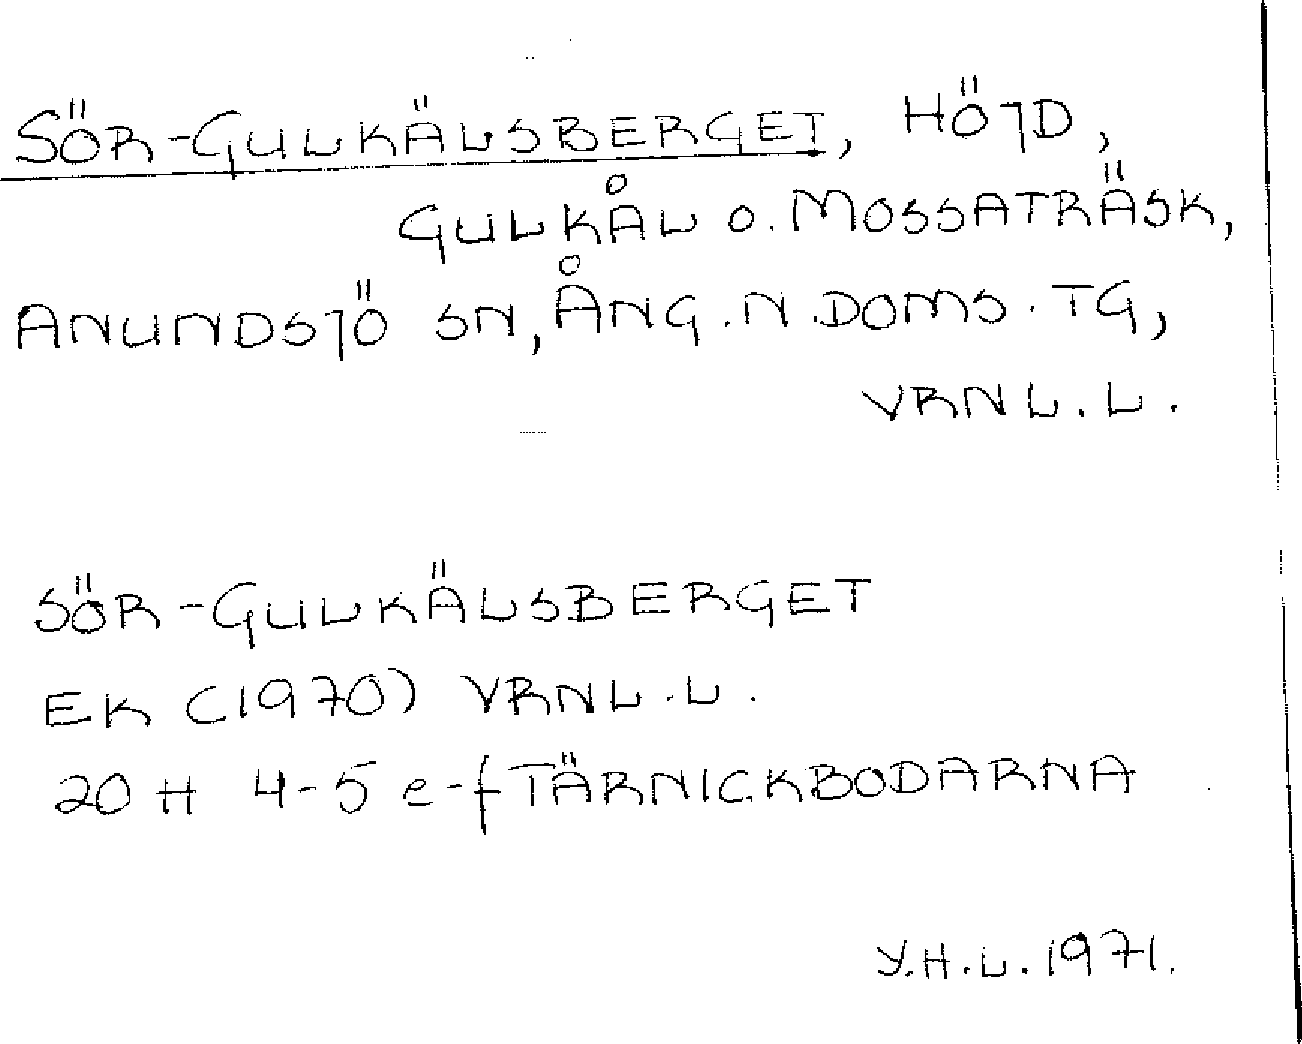 SÖR-GULKÄLSBERGET, HÖJD,
GULKÅL O. MOSSATRÄSK,
ANUNDSJÖ SN, ÅNG. N. DOMS. TG,
VRNL. L.
SÖR-GULKÄLSBERGET
EK (1970) VRNL. L.
20 H 4-5 e-f TÄRNICKBODARNA
Y.H.L. 1971.